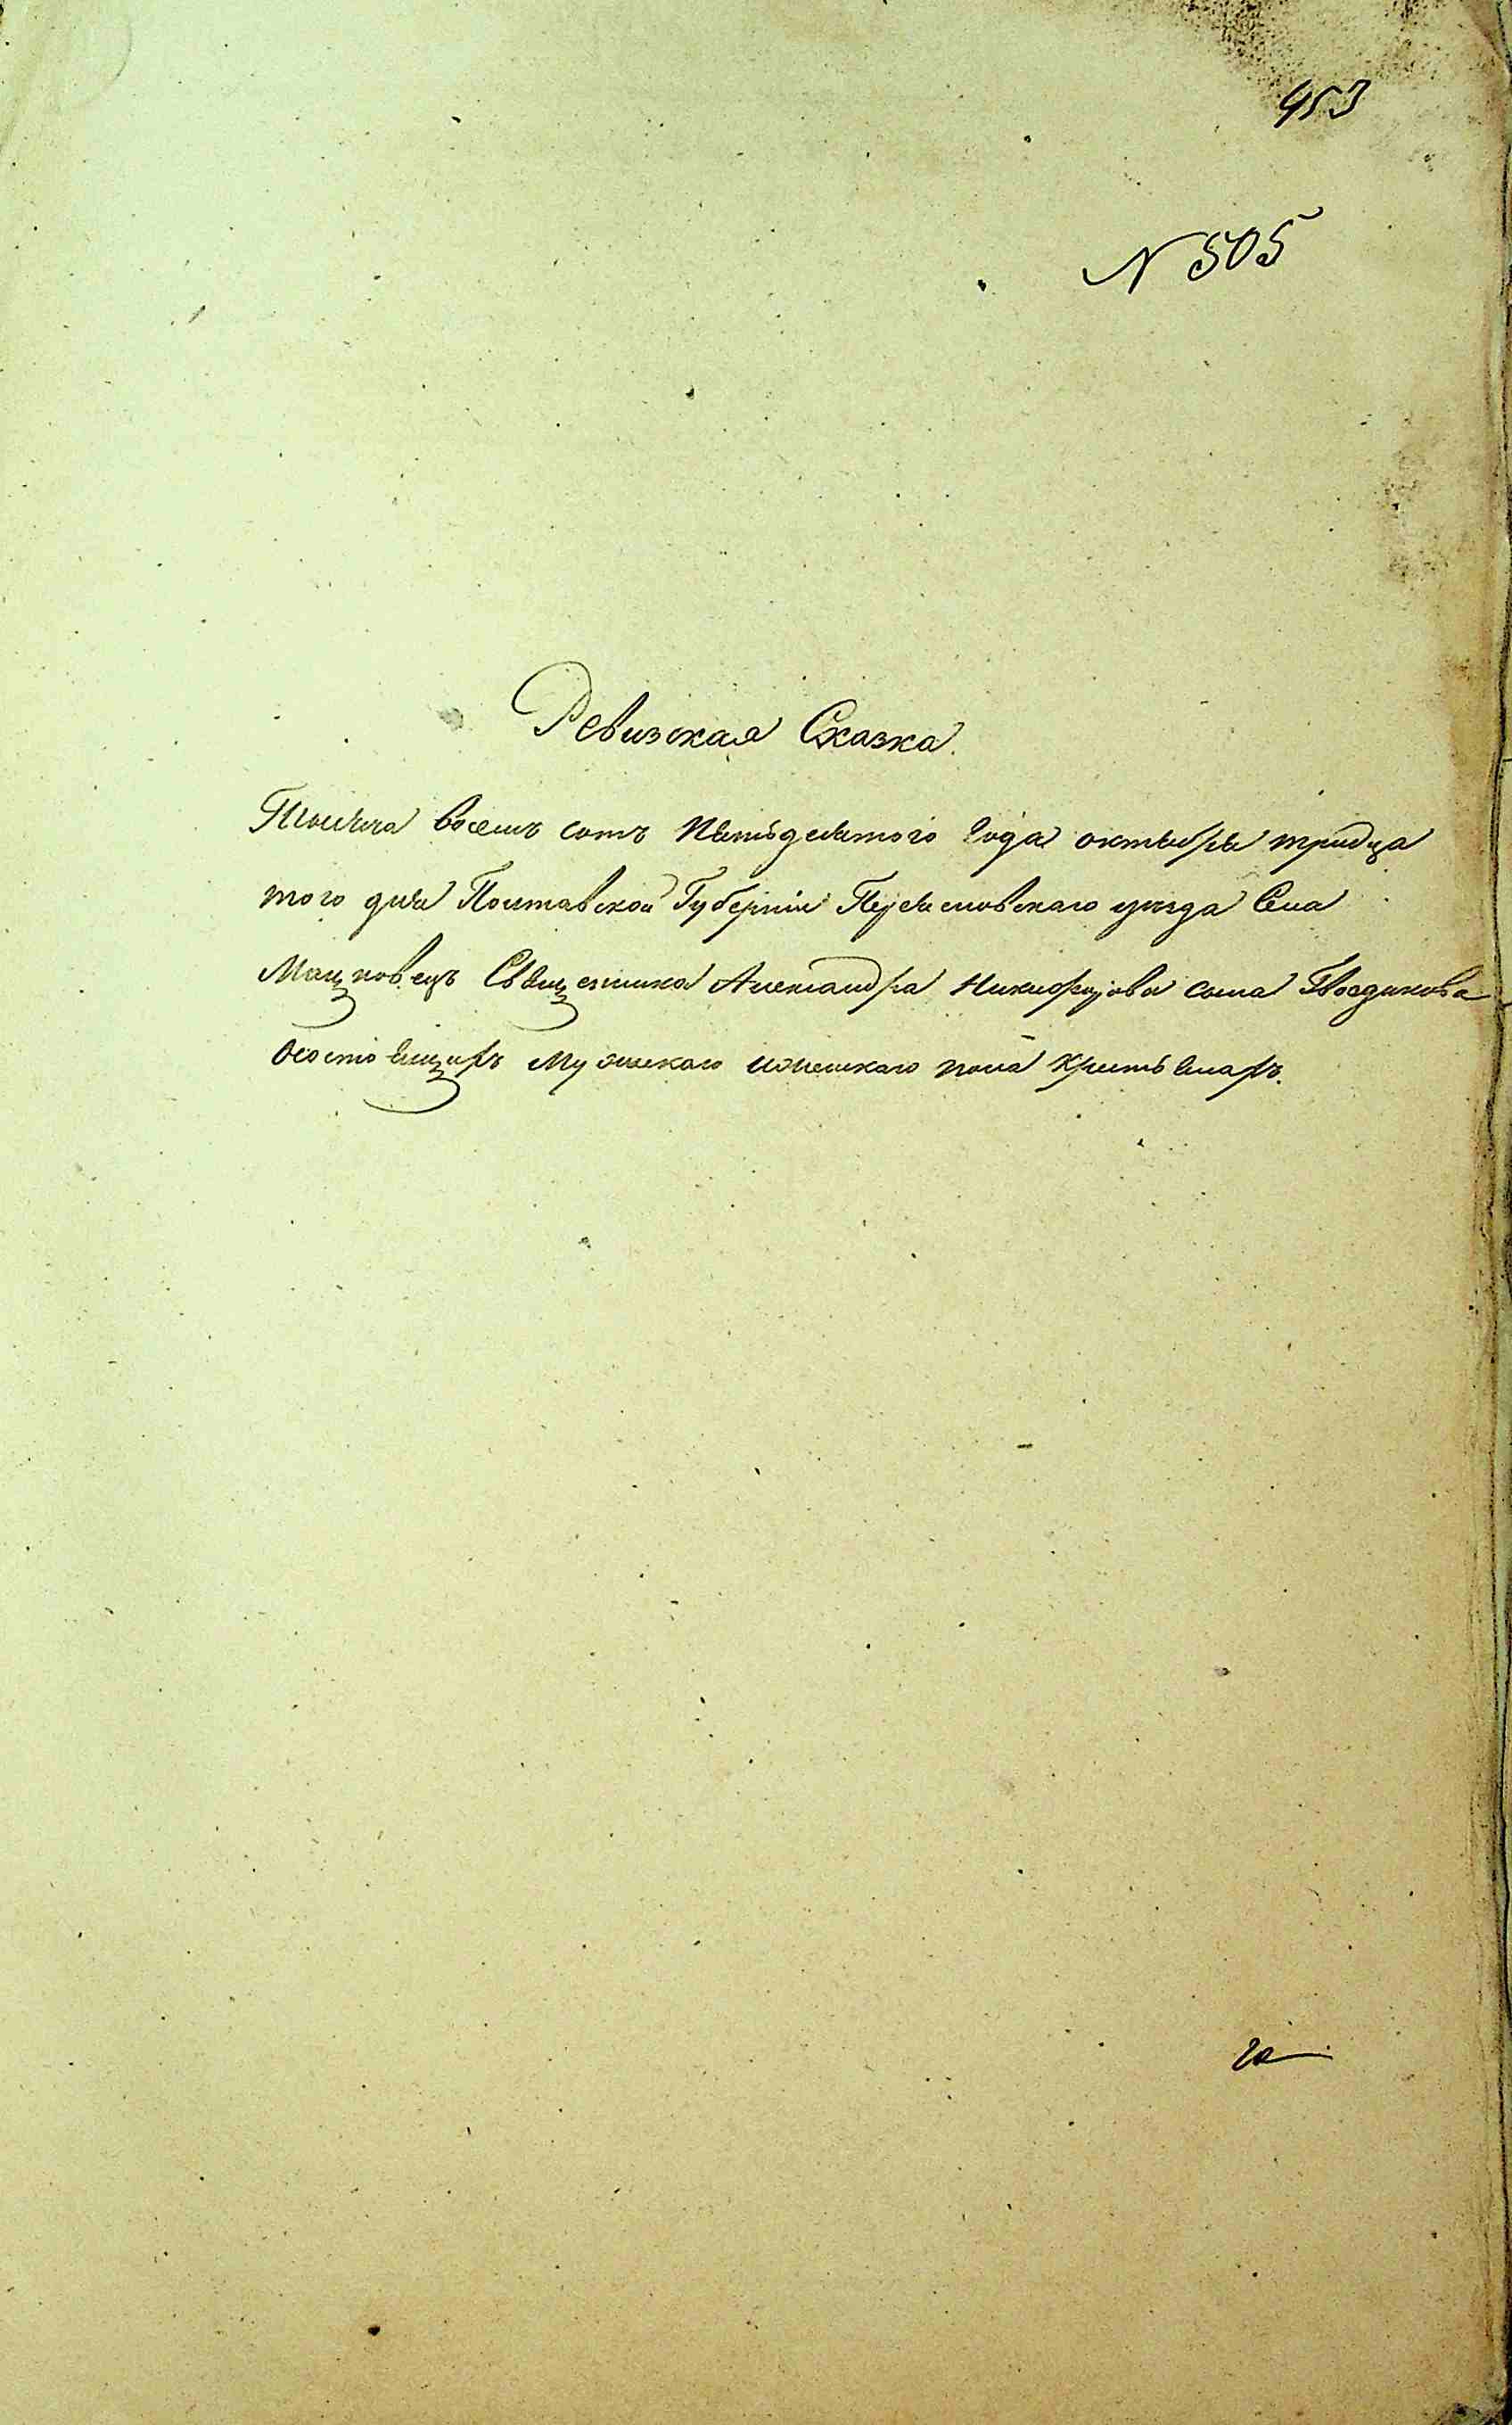 453
N 505
Ревизская Сказка.
Тысяча восемъ сотъ пятьдесятого года октября тридца
того дня Полтавской Губерніи Переясловскаго уезда Села
Мацковецъ Священника Александра Никифорова сына Гвоздикова
О состоящихъ мужескаго и женскаго пола крестьянахъ.